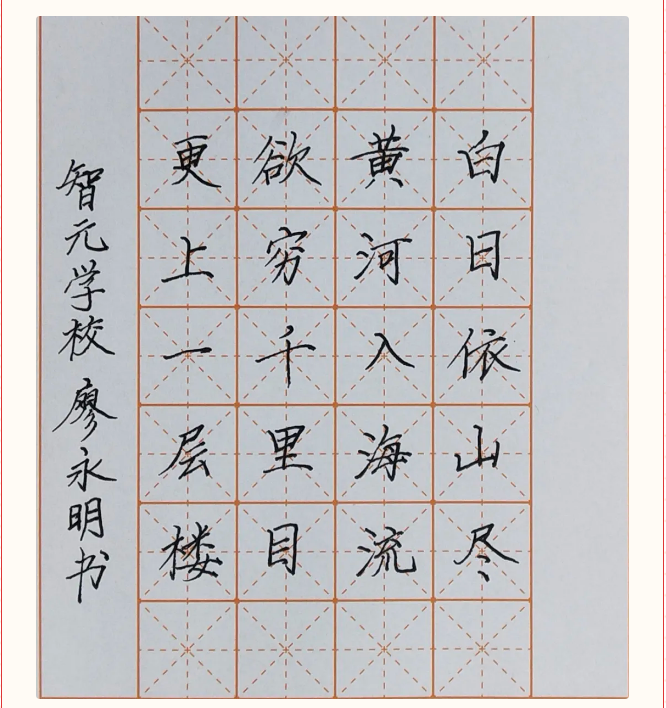 白日依山尽
黄河入海流
欲穷千里目
更上一层楼
智元学校 廖永明书